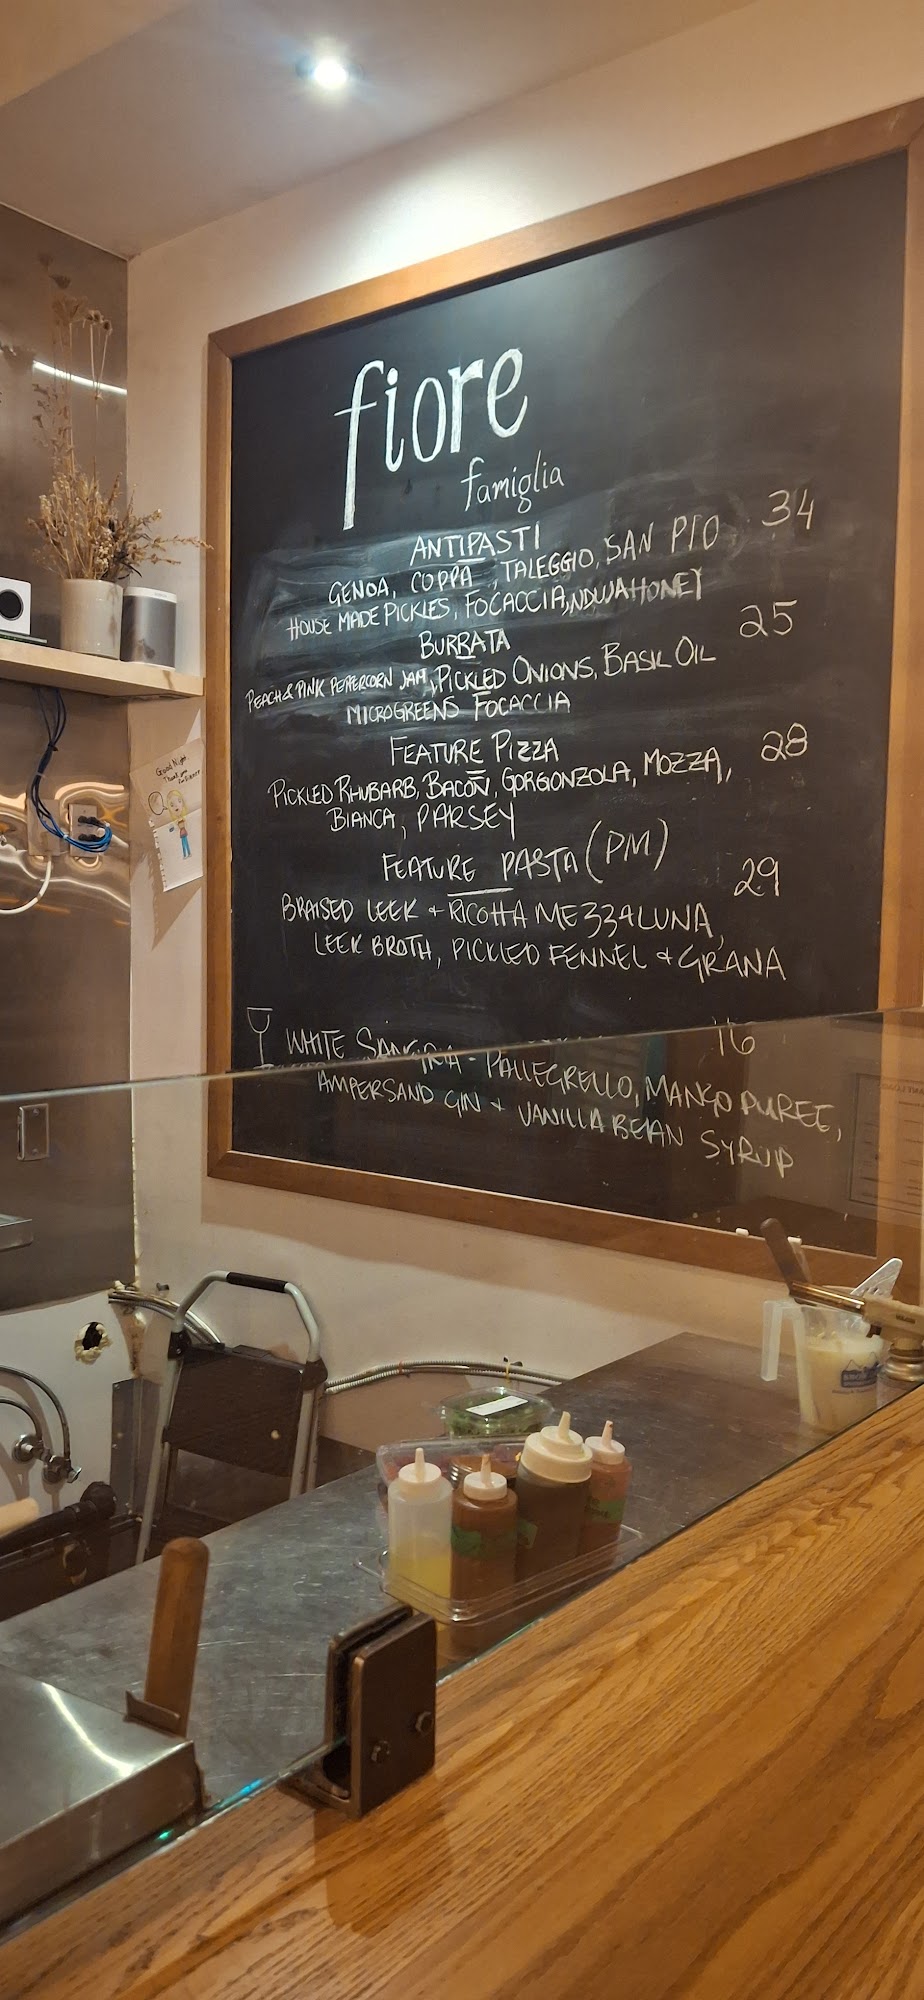 fiore
famiglia
ANTIPASTI 34
GENOA, COPPA, TALEGGIO, SAN PIO
HOUSE MADE PICKLES, FOCACCIA, NDUJA HONEY
BURRATA 25
PEACH & PINK PEPPERCORN JAM, PICKLED ONIONS, BASIL OIL
MICROGREENS FOCACCIA
FEATURE PIZZA 28
PICKLED RHUBARB, BACON, GORGONZOLA, MOZZA,
BIANCA, PARSEY
FEATURE PASTA (PM) 29
BRAISED LEEK + RICOTTA MEZZALUNA,
LEEK BROTH, PICKLED FENNEL + GRANA
WHITE SANGRIA - PALLEGRELLO, MANGO PUREE, 16
AMPERSAND GIN + VANILLA BEAN SYRUP
Good Night
Thank you